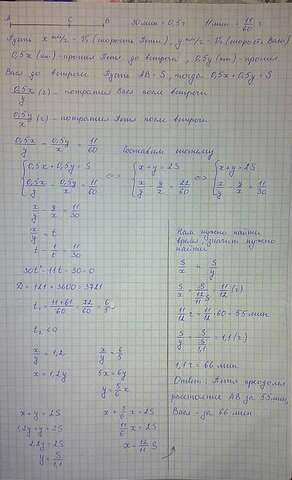 A C B 30 мин = 0,5 г 11 мин = 11/60 г
Пусть x км/г - V₁ (скорость Пети), y км/г - V₂ (скорость Васи)
0,5x (км) - прошел Петя до встречи, 0,5y (км) - прошел
Вася до встречи. Пусть AB = S, тогда 0,5x + 0,5y = S
0,5x/y (г) - потратил Вася после встречи
0,5y/x (г) - потратил Петя после встречи
0,5x/y - 0,5y/x = 11/60 Составим систему
{0,5x + 0,5y = S <=> {x + y = 2S <=> {x + y = 2S
{0,5x/y - 0,5y/x = 11/60 {x/y - y/x = 22/60 {x/y - y/x = 11/30
x/y - y/x = 11/30
x/y = t
t - 1/t = 11/30
30t² - 11t - 30 = 0
D = 121 + 3600 = 3721
t₁ = (11+61)/60 = 72/60 = 6/5
t₂ < 0
x/y = 1,2 x/y = 6/5
x = 1,2y 5x = 6y
y = 5/6 x
x + y = 2S x + 5/6 x = 2S
1,2y + y = 2S 11/6 x = 2S
2,2y = 2S x = 12/11 S
y = S/1,1
Нам нужно найти
время, значит нужно
найти
S/x и S/y
S/x = S/(12/11 S) = 11/12 (г)
11/12 г = 11/12 · 60 = 55 мин
S/y = S/(S/1,1) = 1,1 (г)
1,1 г = 66 мин
Ответ: Петя преодолел
расстояние AB за 55 мин,
Вася - за 66 мин